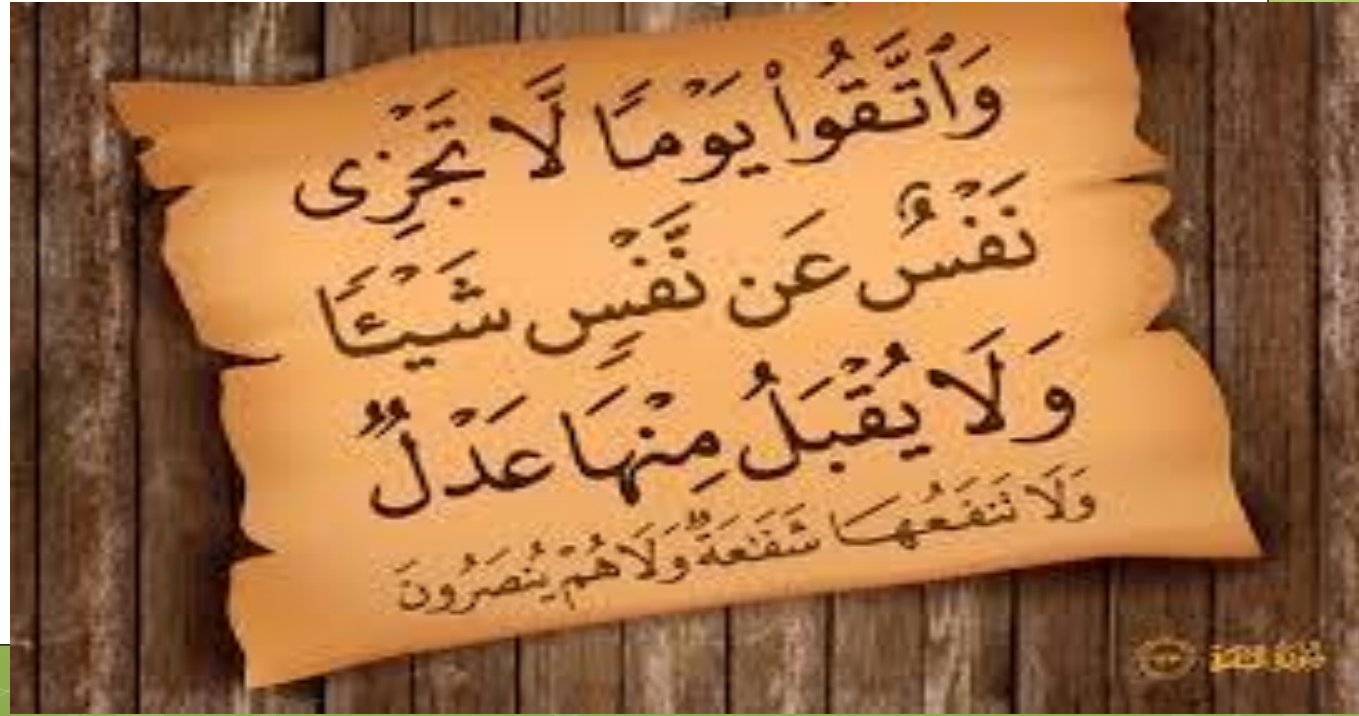 وَٱتَّقُوا۟ يَوْمًا لَّا تَجْزِى
نَفْسٌ عَن نَّفْسٍ شَيْـًٔا
وَلَا يُقْبَلُ مِنْهَا عَدْلٌ
وَلَا تَنفَعُهَا شَفَـٰعَةٌ وَلَا هُمْ يُنصَرُونَ
سورة البقرة